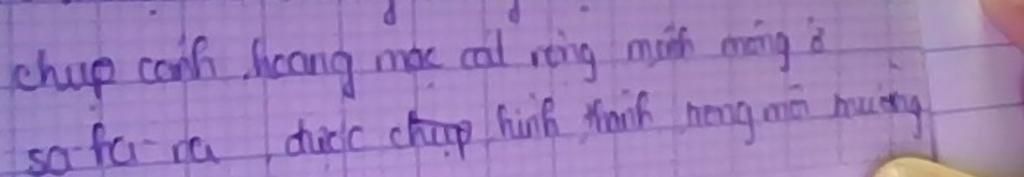 chụp cảnh hoang mạc cát rộng mênh mông ở
sa-ha-ra, được chụp hình thành hoang mạc